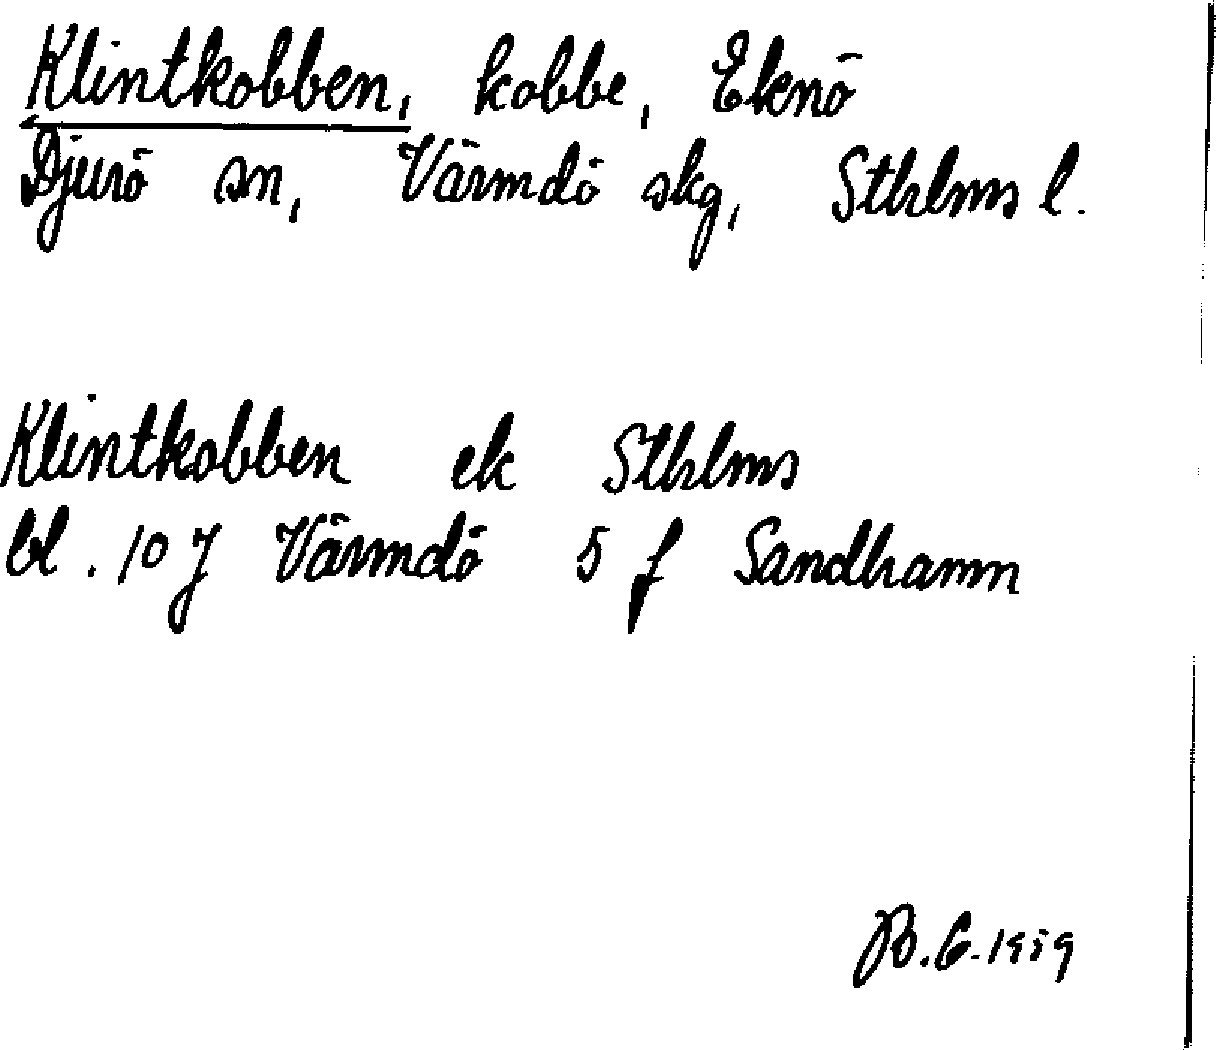 Klintkobben, kobbe, Eknö
Djurö sn, Värmdö skg, Sthlms l.
Klintkobben ek Sthlms
bl. 10 J Värmdö 5 f Sandhamn
B.G. 1959